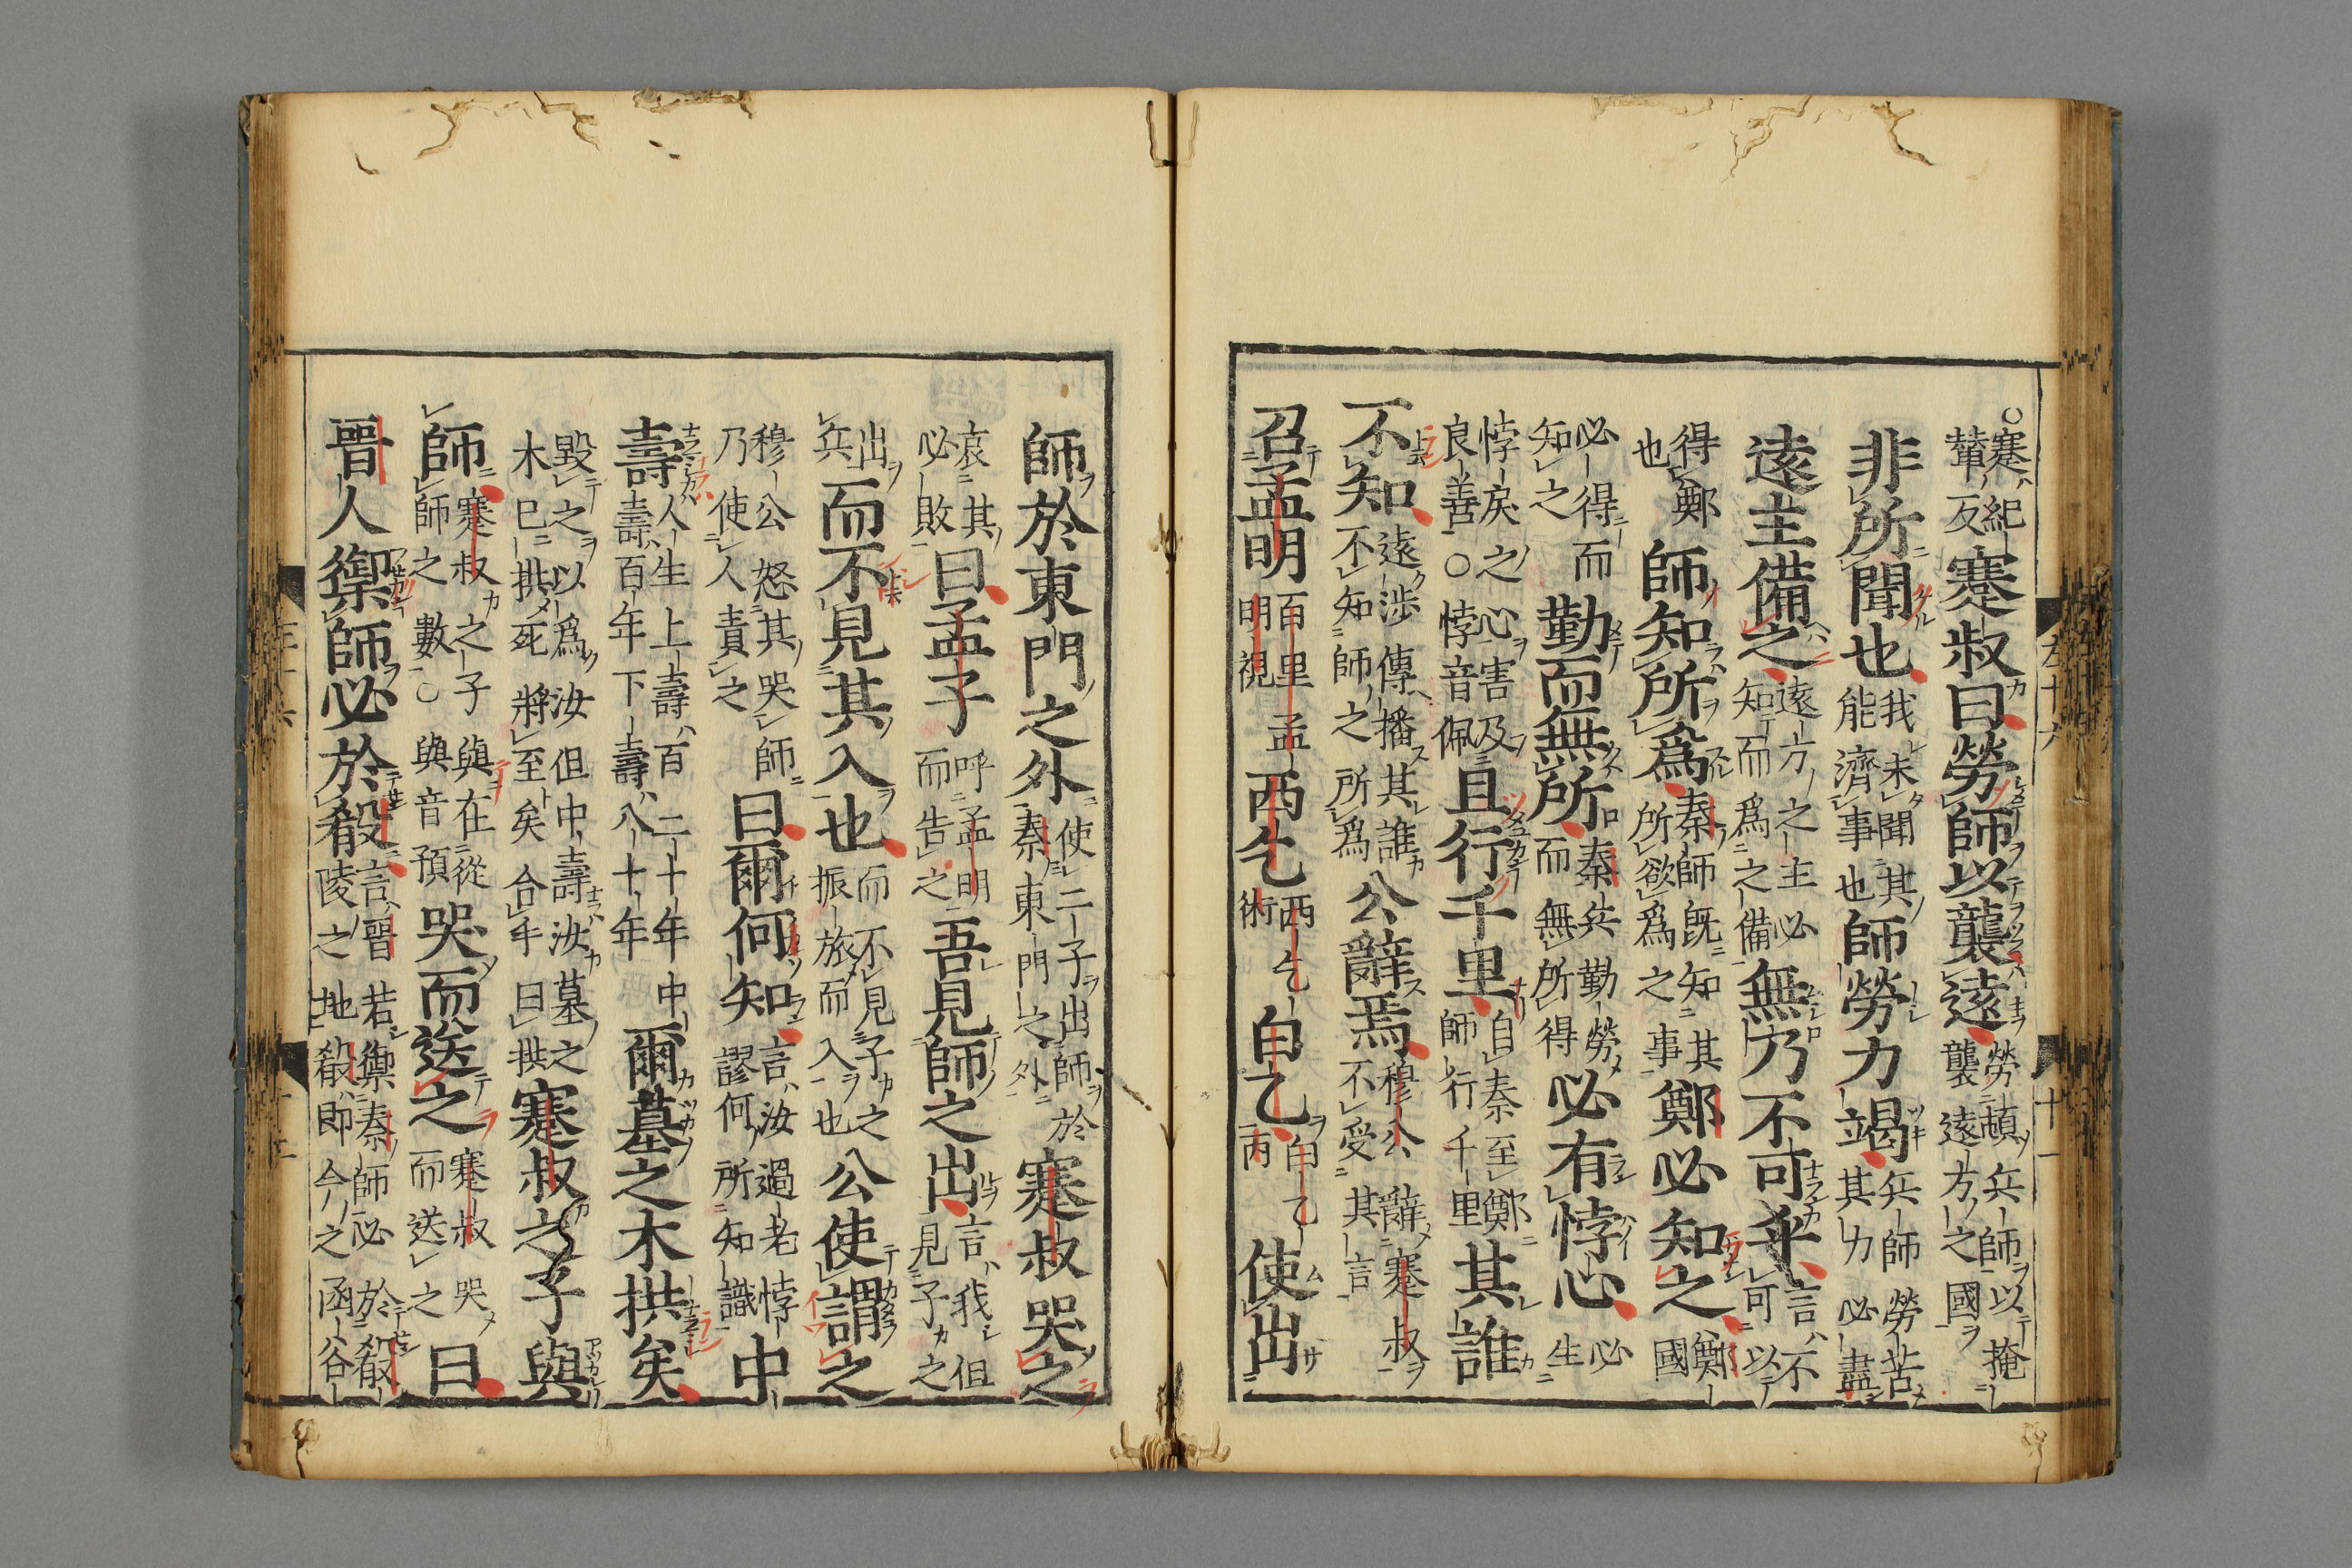 ○蹇紀輦反蹇叔曰勞師以襲遠勞頓兵師以掩襲遠方之國
非所聞也我未聞其能濟事也師勞力竭兵師勞苦其力必盡
遠主備之遠方之主必知而爲之備無乃不可乎言不可以
得鄭也師知所爲秦師既知其所欲爲之事鄭必知之鄭國
必得而知之勤而無所秦兵勤勞而無所得必有悖心必生
悖戾之心害及良善○悖音佩且行千里自秦至鄭師行千里其誰
不知遠涉傳播其誰不知師之所爲公辭焉穆公辭蹇叔不受其言
召孟明百里孟明視西乞西乞術白乙白乙丙使出
師於東門之外使二子出師於秦東門之外蹇叔哭之
哀其必敗曰孟子呼孟明而告之吾見師之出言我但見子之
出兵而不見其入也而不見子之振旅而入也公使謂之
穆公怒其哭師乃使人責之曰爾何知言汝過老悖謬何所知識中
壽人生上壽百二十年中壽百年下壽八十年爾墓之木拱矣
毀之以爲汝但中壽汝墓之木已拱死將至矣合手曰拱蹇叔之子與
師蹇叔之子與在從師之數○與音預哭而送之蹇叔哭而送之曰
晉人禦師必於殽言晉若禦秦師必於殽陵之地殽即今之函谷